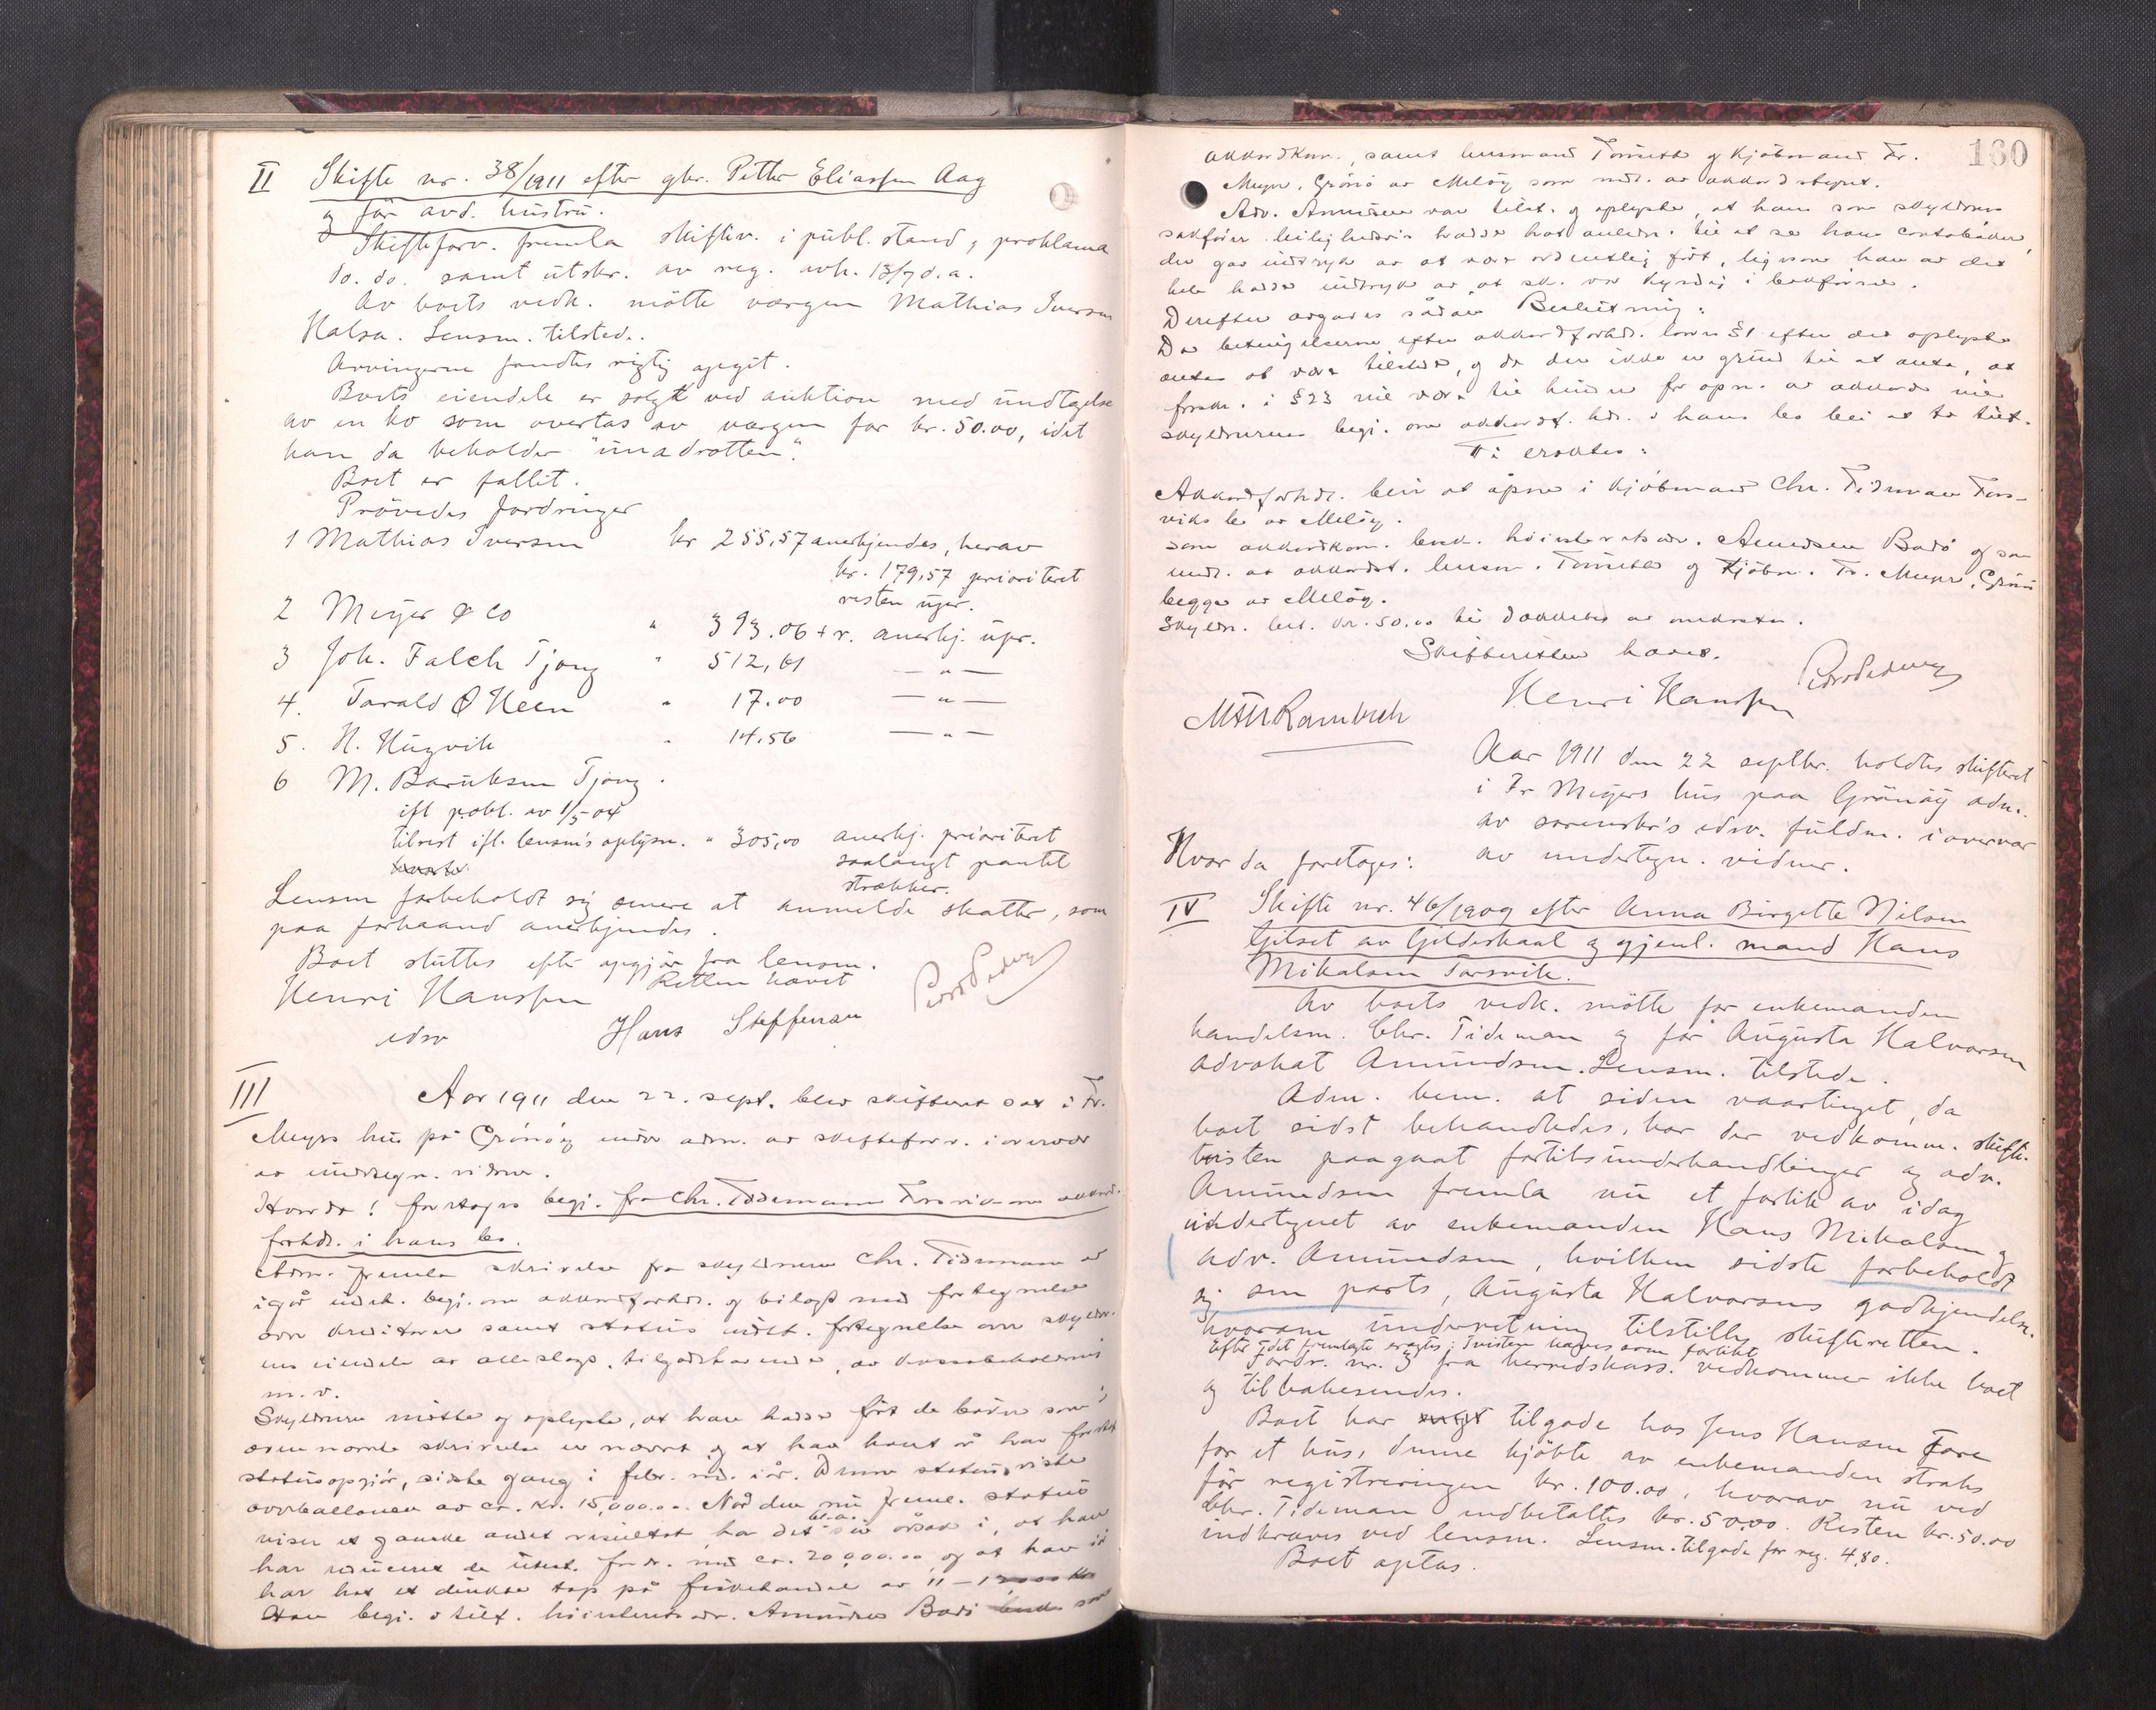 II Skifte nr. 38/1911 efter gbr. Petter Eliassen Aag
og før avd. hustru.
Skifteforv. fremla skiftev. i publ. stand, proklama
do. do. samt utskr. av reg. avh. 13/7 d.a.
Av boets vedk. mötte vergen Mathias Iversen
Halsa. Lensm. tilsted.
Arvingerne fandtes rigtig opgit.
Boets eiendele er solgt ved auktion med undtagelse
av en ko som overtas av vergen for kr. 50.00, idet
han da beholder "unadrotten".
Boet er fallit.
Prövedes fordringer
1 Mathias Iversen kr 255,57 anerkjendes, herav
kr. 179,57 prioriteret
resten upr.
2 Meyer & Co " 393.06 + r. anerkj. upr.
3 Joh. Falch Tjong " 512,61 — " —
4. Tarald O Heen " 17.00 — " —
5. N. Hugvik " 14.56 — " —
6 M. Baruksen Tjong.
ifl pobl. av 1/5-04
tilrest ifl. lensm's oplysn. " 305,00 anerkj. prioriteret
saalangt pantet
strækker.
Lensm forbeholdt sig senere at anmelde skatter, som
paa forhaand anerkjendes.
Boet sluttes efter opgjör fra lensm.
Retten hævet
Henri Hanssen
edsv
Hans Steffensen
III Aar 1911 den 22. sept. blev skifteret sat i Fr.
Meyers hus på Grönöy under adm. av skifteforv. i overvær
av undertegn. vidner.
Hvorda! foretages begj. fra Chr. Tidemann Forsvik om akkord-
forhdl. i hans bo.
Adm. fremla skrivelse fra skyldneren Chr. Tidemann av
igår indeh. begj. om akkordforhdl. og bilagt med fortegnelse
over kreditorer samt status indeh. fortegnelse over skyldne-
rens eiendele av alle slags, tilgodehavender, av kassabeholdning
m.v.
Skyldneren mötte og oplyste, at han hadde fört de böker som i
ovennævnte skrivelse er nævnt og at han hvert år har foretat
statusopgjör, sidste gang i febr. md. i år. Denne status viste
overballance av ca. kr. 15,000.00. Når den nu freml. status
viser et ganske andet resultat, har det bl.a. sin årsak i, at han
har reduceret de utest. fordr. med ca. 20,000.00 og at han i år
har hat et direkte tap på fiskehandel av 11 – 12000 kr
Han begj. o tilf. höiesteretsadv. Amundsen Bodö som
160
akkordkom., samt lensmand Tømeth og Kjöbmand Fr.
Meyer, Grönö av Melöy som medl. av akkordstyret.
Adv. Amundsen var tilst. og oplyste, at han som skyldnerens
sakförer leilighedsvis hadde hat anledn. til at se hans contoböker,
der gav indtryk av at være ordentlig fört, ligesom han av det
hele hadde indtryk av, at sk. var kyndig i bokförsel.
Derefter avgaves sådan Beslutning:
Da betingelserne efter akkordforhdl. loven §1 efter det oplyste
antas at være tilstede, og da der ikke er grund til at anta, at
forsk. i §23 vil være til hinder for åpn. av akkord vil
skyldnerens begj. om akkordf. hdl. i hans bo bli at ta tilf.
Ti eragtes:
Akkordforhdl. blir at åpne i kjöbmand Chr. Tidemann Fors-
viks bo av Melöy.
som akkordkom. besk. höiesteretsadv. Amundsen Bodö og som
medl. av akkordst. lensm. Tømeth og Kjöbm. Fr. Meyer, Grönö
begge av Melöy.
Skyldn. bet. kr. 50.00 til dækkelse av omkostn.
Skifteretten hævet.
Henri Hanssen
Aar 1911 den 22 septbr. holdtes skifteret
i Fr Meyers hus paa Grönöy adm.
av sorenskr's edsv. fuldm. i overvær
Hvor da foretoges: av undertegn. vidner.
IV Skifte nr. 46/1909 efter Anna Birgitte Nilsen
Gilset av Gildeskaal og gjenl. mand Hans
Mikalsen Forsvik.
Av boets vedk. mötte for enkemanden
handelsm. Chr. Tideman og for Augusta Halvorsen
advokat Amundsen. Lensm. tilstede.
Adm. bem. at siden vaartinget, da
boet sidst behandledes, har der vedkomm. skifte-
tvisten paagaat forliksunderhandlinger og adv.
Amundsen fremla nu et forlik av idag
undertegnet av enkemanden Hans Mikalsen og
adv. Amundsen, hvilken sidste forbeholdt
sig sin parts, Augusta Halvorsens godkjendelse,
hvorom underretning tilstilles skifteretten.
Efter det fremlagte eragtes: Tvisten hæves som forlikt
Fordr. nr. 3 fra herredskass. vedkommer ikke boet
og tilbakesendes.
Boet har tilgode hos Jens Hansen Fore
for et hus, denne kjöbte av enkemanden straks
för registreringen kr. 100.00, hvorav nu ved
Chr. Tideman indbetaltes kr. 50.00. Resten kr. 50.00
indkræves ved lensm. Lensm. tilgode for reg. 4,80.
Boet optas.